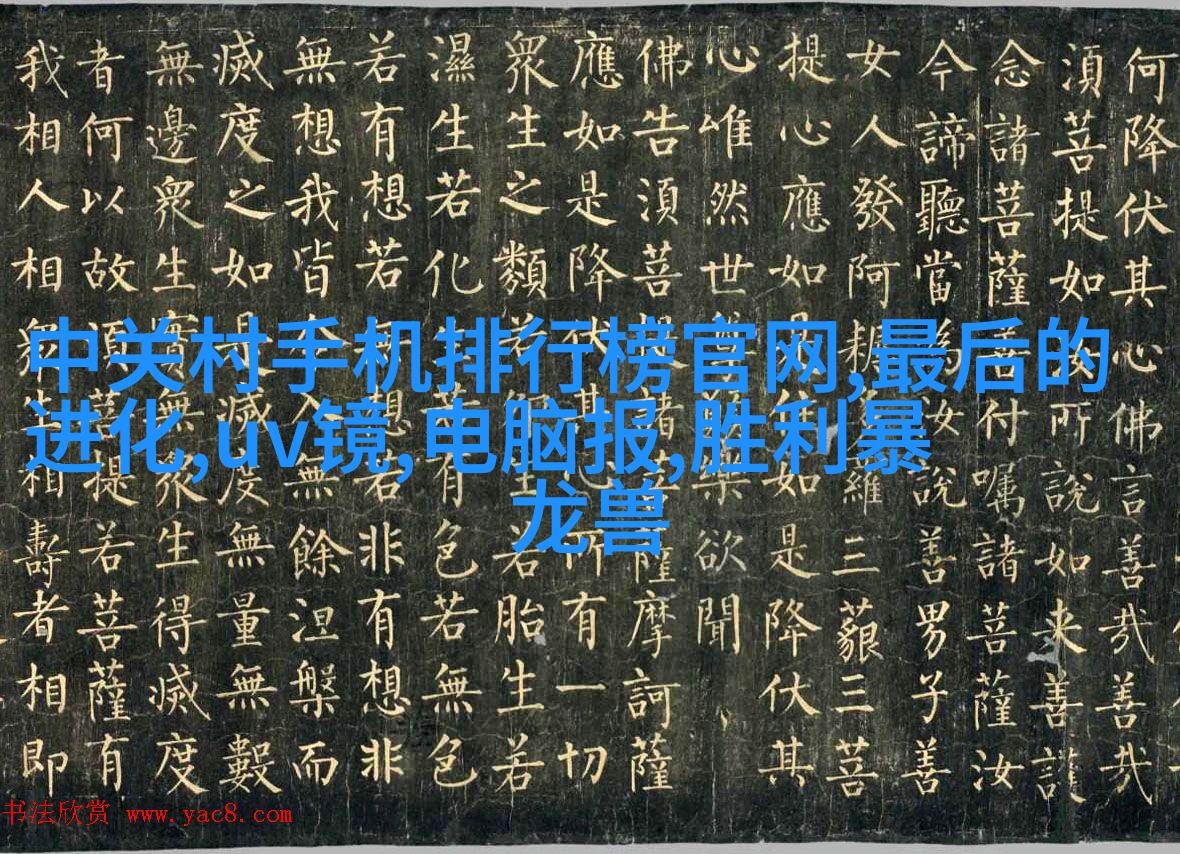 中关村手机排行榜官网,最后的
进化,uv镜,电脑报,胜利暴
龙兽
何降伏其心佛言善哉善哉
須菩提如汝所說如来善護
念諸菩薩善付嘱諸菩薩汝
今諦聽當為汝說善男子善
女人發阿耨羅三藐三菩
提心應如是住如是降伏其
心唯然世尊樂欲聞
佛告須菩提諸菩薩摩訶薩
應如是降伏其心所有一切
衆生之類若卵生若胎生若
濕生若化生若有色若無色
若有想若無想若非有想非
無想我皆令入無餘涅槃而
滅度之如是滅度無量無數
無邊衆生實無衆生得滅度
者何以故須菩提若菩薩有
我相人相衆生相壽者相即
书法欣赏 www.yac8.com